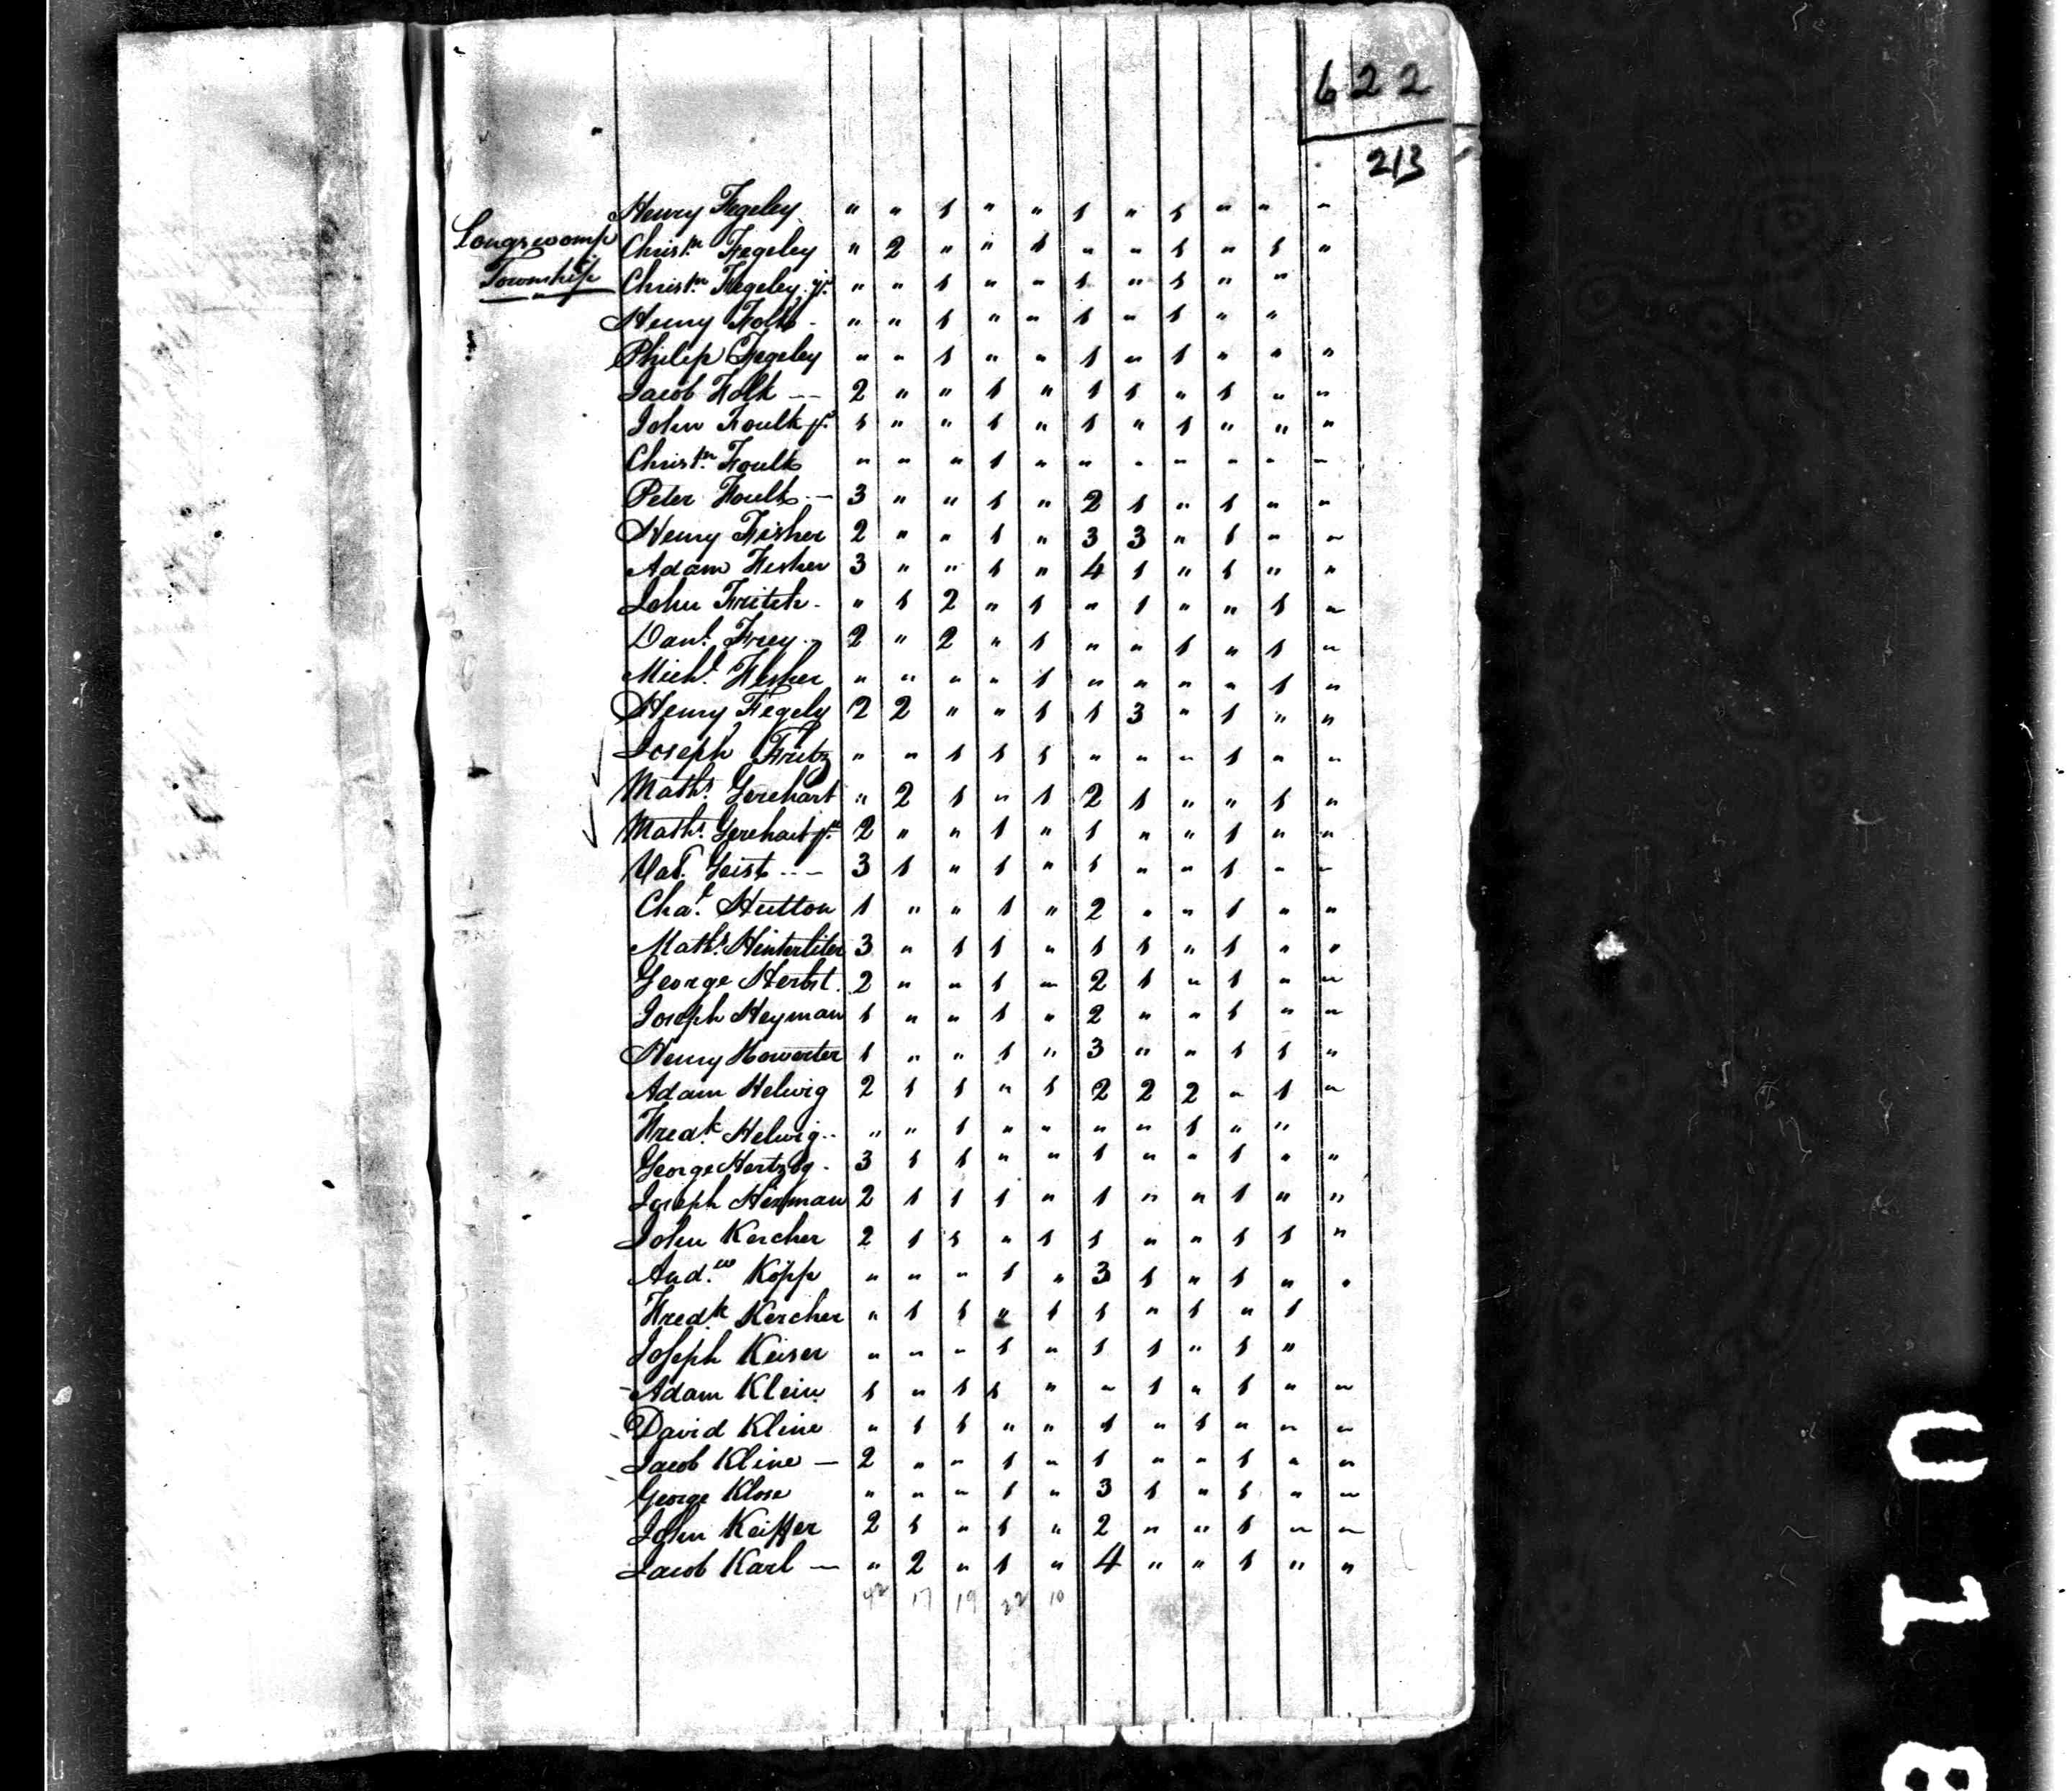 622
213
Henry Fegeley " " 1 " " 1 " 1 " " "
Longswomp Christn. Fegeley " 2 " " 1 " " 1 " 1 "
Township Christn. Fegeley jr. " " 1 " " 1 " 1 " "
Henry Folk - " " 1 " " 1 " 1 " "
Philip Fegeley " " 1 " " 1 " 1 " " "
Jacob Folk -- 2 " " 1 " 1 1 " 1 " "
John Foulk jr. 1 " " 1 " 1 " 1 " " "
Christn. Foulk " " " 1 " " " " " " "
Peter Foulk - 3 " " 1 " 2 1 " 1 " "
Henry Fisher 2 " " 1 " 3 3 " 1 " "
Adam Fisher 3 " " 1 " 4 1 " 1 " "
John Fritch - " 1 2 " 1 " 1 " " 1 "
Danl. Frey - 2 " 2 " 1 " " 1 " 1 "
Michl. Fisher " " " " 1 " " " " 1 "
Henry Fegely 2 2 " " 1 1 3 " 1 " "
Joseph Fritz " " 1 1 1 " " " 1 " "
Maths. Gerehart " 2 1 " 1 2 1 " " 1 "
Maths. Gerehart jr. 2 " " 1 " 1 " " 1 " "
Val. Geist -- 3 1 " 1 " 1 " " 1 " "
Chas. Hutton 1 " " 1 " 2 " " 1 " "
Maths. Hinterliter 3 " 1 1 " 1 1 " 1 " "
George Herbst. 2 " " 1 " 2 1 " 1 " "
Joseph Heyman 1 " " 1 " 2 " " 1 " "
Henry Howerter 1 " " 1 " 3 " " 1 1 "
Adam Helwig 2 1 1 " 1 2 2 2 " 1 "
Fredk. Helwig - " " 1 " " " " 1 " "
George Hertzog - 3 1 1 " " 1 " " 1 " "
Joseph Herman 2 1 1 1 " 1 " " 1 " "
John Kercher 2 1 1 " 1 1 " " 1 1 "
Andw. Kopp " " " 1 " 3 1 " 1 " "
Fredk. Kercher " 1 1 " 1 1 " 1 " 1
Joseph Keiser " " " 1 " 1 1 " 1 "
Adam Klein 1 " 1 1 " " 1 " 1 " "
David Kline " 1 1 " " 1 " 1 " " "
Jacob Kline - 2 " " 1 " 1 " " 1 " "
George Klose " " " 1 " 3 1 " 1 " "
John Keiffer 2 1 " 1 " 2 " " 1 " "
Jacob Karl - " 2 " 1 " 4 " " 1 " "
42 17 19 22 10
U18